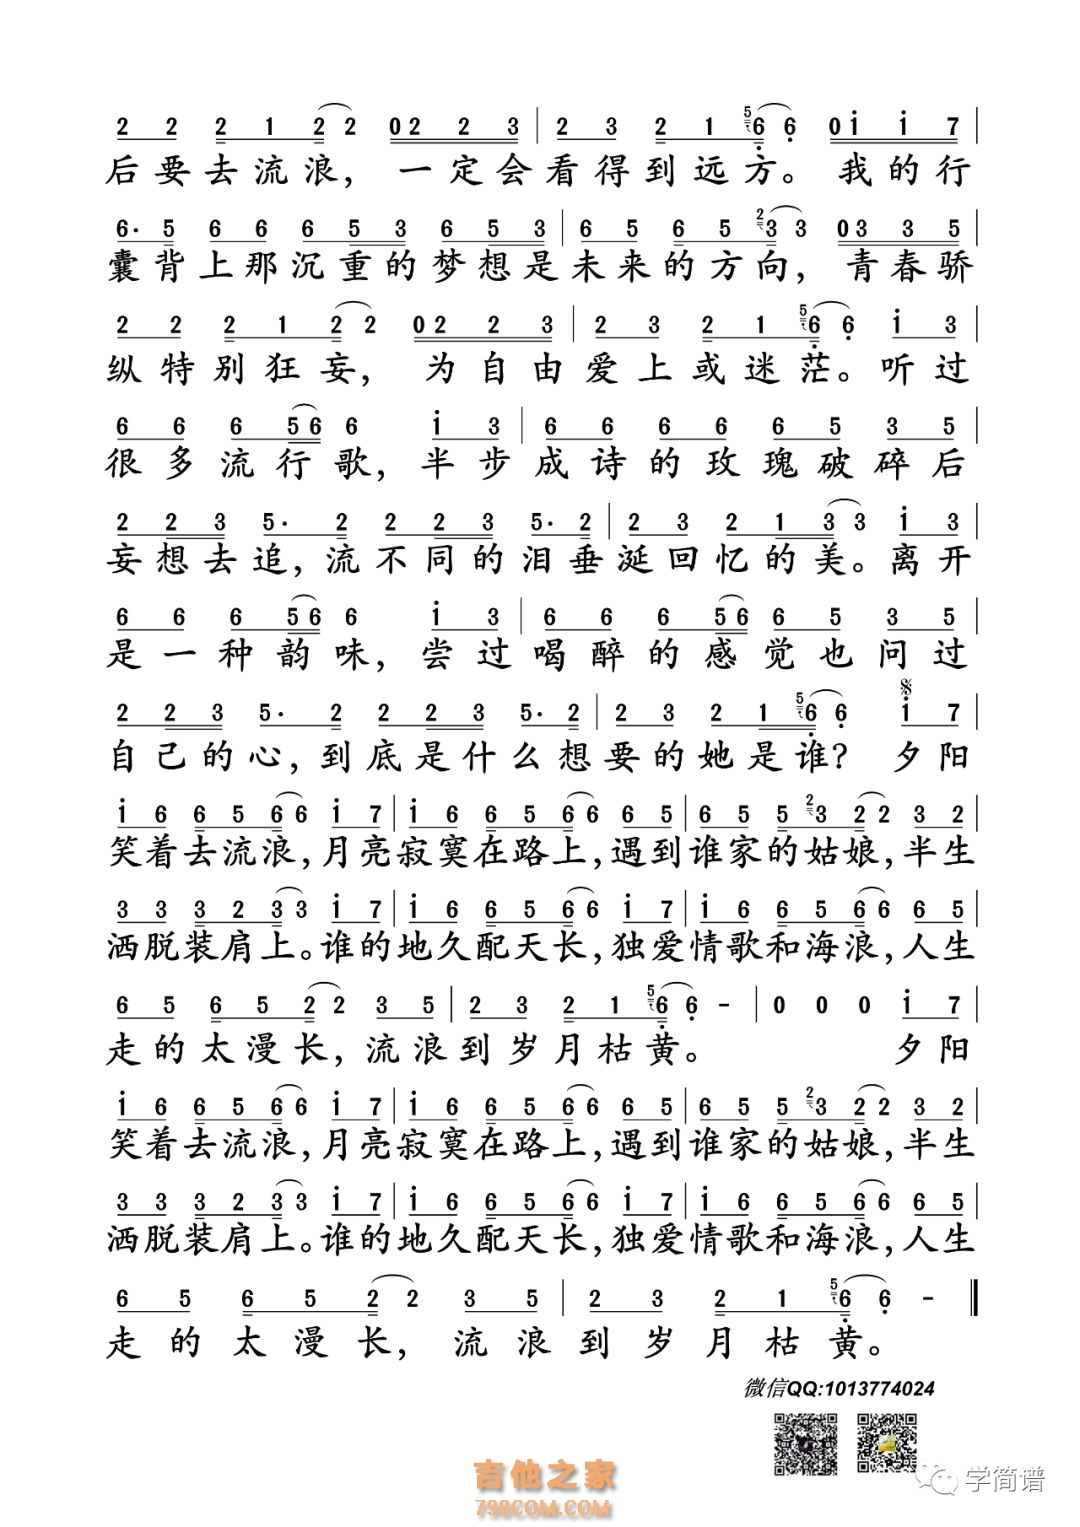 2 2 2 1 2 2 0 2 2 3 | 2 3 2 1 5 6 6 0 1 1 7 |
后要去流浪，一定会看得到远方。我的行
6· 5 6 6 6 5 3 6 5 3 | 6 5 6 5 2 3 3 0 3 3 5 |
囊背上那沉重的梦想是未来的方向，青春骄
2 2 2 1 2 2 0 2 2 3 | 2 3 2 1 5 6 6 1 3 |
纵特别狂妄，为自由爱上或迷茫。听过
6 6 6 5 6 6 1 3 | 6 6 6 6 6 5 3 5 |
很多流行歌，半步成诗的玫瑰破碎后
2 2 3 5· 2 2 2 3 5· 2 | 2 3 2 1 3 3 1 3 |
妄想去追，流不同的泪垂涎回忆的美。离开
6 6 6 5 6 6 1 3 | 6 6 6 5 6 6 5 3 5 |
是一种韵味，尝过喝醉的感觉也问过
2 2 3 5· 2 2 2 3 5· 2 | 2 3 2 1 5 6 6 1 7 |
自己的心，到底是什么想要的她是谁？夕阳
1 6 6 5 6 6 1 7 | 1 6 6 5 6 6 6 5 | 6 5 5 2 3 2 2 3 2 |
笑着去流浪，月亮寂寞在路上，遇到谁家的姑娘，半生
3 3 3 2 3 3 1 7 | 1 6 6 5 6 6 1 7 | 1 6 6 5 6 6 6 5 |
洒脱装肩上。谁的地久配天长，独爱情歌和海浪，人生
6 5 6 5 2 2 3 5 | 2 3 2 1 5 6 6 - | 0 0 0 1 7 |
走的太漫长，流浪到岁月枯黄。夕阳
1 6 6 5 6 6 1 7 | 1 6 6 5 6 6 6 5 | 6 5 5 2 3 2 2 3 2 |
笑着去流浪，月亮寂寞在路上，遇到谁家的姑娘，半生
3 3 3 2 3 3 1 7 | 1 6 6 5 6 6 1 7 | 1 6 6 5 6 6 6 5 |
洒脱装肩上。谁的地久配天长，独爱情歌和海浪，人生
6 5 6 5 2 2 3 5 | 2 3 2 1 5 6 6 - ‖
走的太漫长，流浪到岁月枯黄。
微信QQ:1013774024
吉他之家
798COM.COM
学简谱